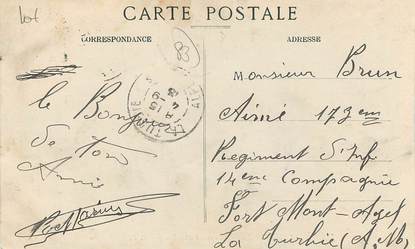 Lot
CARTE POSTALE
CORRESPONDANCE
ADRESSE
83
Monsieur Brun
Aimé 173em
Regiment d'Inf
14eme Compagnie
Fort Mont-Agel
La Turbie (A M)
le Bonjour
de ton
Ami
LA TURBIE